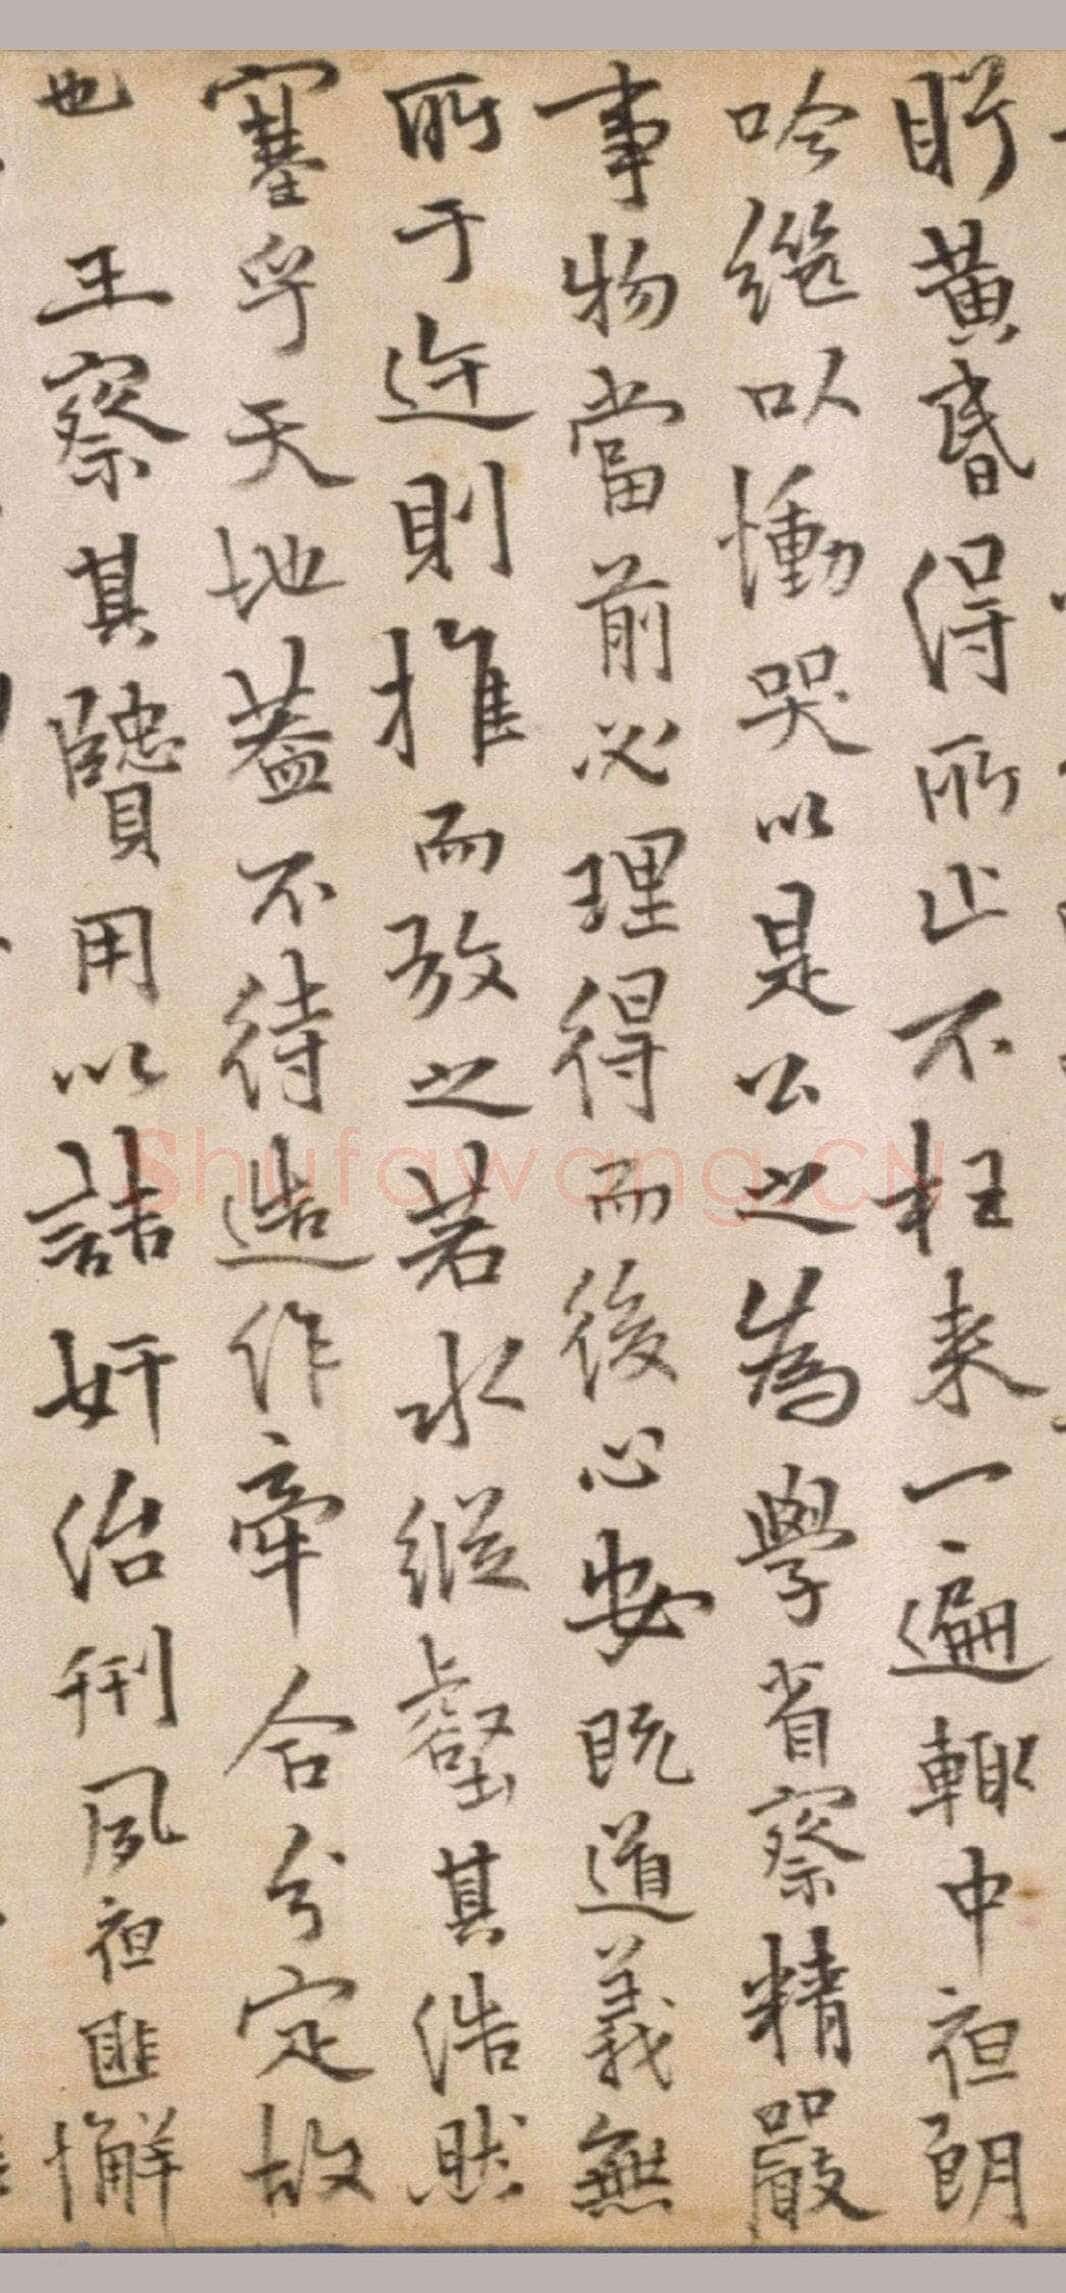 盱黃昏得所止不枉來一遍輙中夜朗
吟繼以慟哭以是公之為學省察精嚴
事物當前必理得而後心安既道義無
所于迕則推而放之若水縱壑其浩然
塞乎天地葢不待造作牽合分定故
也 王察其賢用以詰奸治刑夙夜匪懈
Shufawang.CN